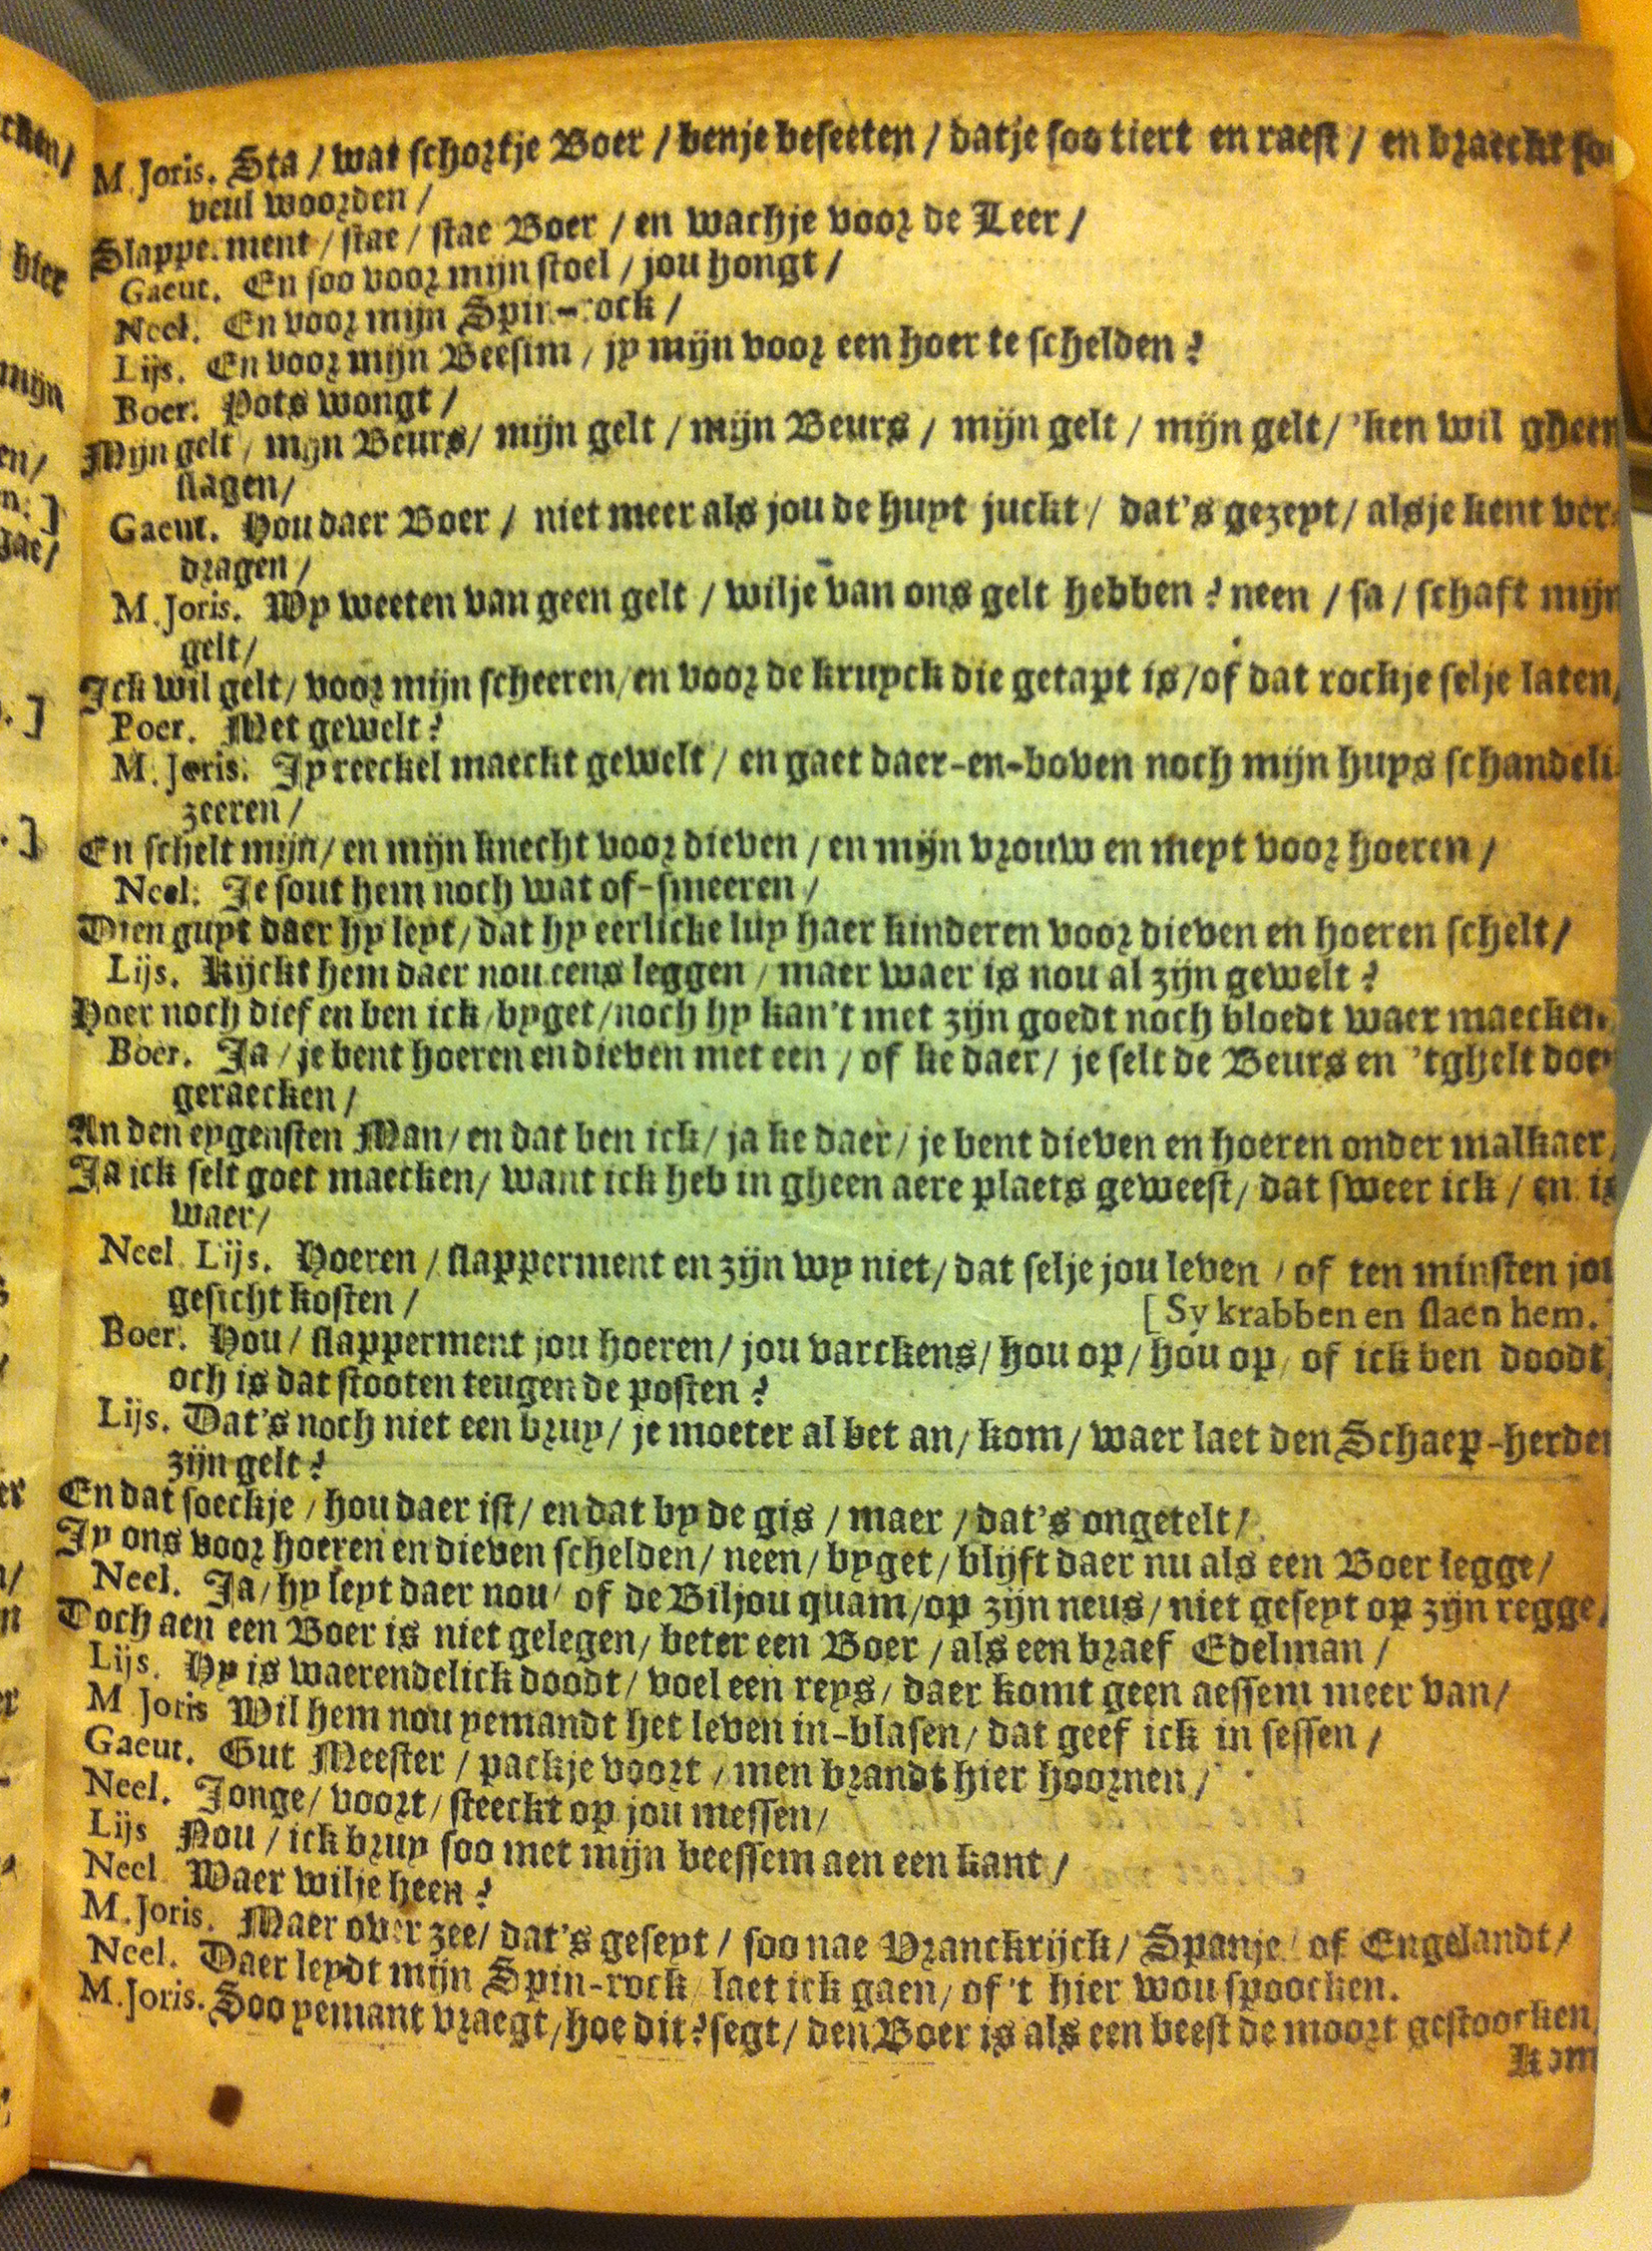 M. Joris. Sta / wat schortje Boer / benje beseeten / datje soo tiert en raest / en braeckt soo
veul woorden /
Slappe.ment / stae / stae Boer / en wachje voor de Leer /
Gaeut. En soo voor mijn stoel / jou hongt /
Neel. En voor mijn Spin-rock /
Lijs. En voor mijn Beesim / jy mijn voor een hoer te schelden?
Boer. Pots wongt /
Mijn gelt / mijn Beurs / mijn gelt / mijn Beurs / mijn gelt / mijn gelt / 'ken wil gheen
slagen /
Gaeut. Hou daer Boer / niet meer als jou de huyt juckt / dat's gezeyt / alsje kent ver-
dragen /
M. Joris. Wy weeten van geen gelt / wilje van ons gelt hebben? neen / sa / schaft mijn
gelt /
Ick wil gelt / voor mijn scheeren / en voor de kruyck die getapt is / of dat rockje selje laten /
Poer. Met gewelt?
M. Joris. Jy reeckel maeckt gewelt / en gaet daer-en-boven noch mijn huys schandeli-
zeeren /
En schelt mijn / en mijn knecht voor dieven / en mijn vrouw en meyt voor hoeren /
Neel. Je sout hem noch wat of-smeeren /
Dien guyt daer hy leyt / dat hy eerlicke luy haer kinderen voor dieven en hoeren schelt /
Lijs. Kijckt hem daer nou eens leggen / maer waer is nou al zijn gewelt?
Hoer noch dief en ben ick / byget / noch hy kan't met zijn goedt noch bloedt waer maecken.
Boer. Ja / je bent hoeren en dieven met een / of ke daer / je selt de Beurs en 'tghelt doen
geraecken /
An den eygensten Man / en dat ben ick / ja ke daer / je bent dieven en hoeren onder malkaer /
Ja ick selt goet maecken / want ick heb in gheen aere plaets geweest / dat sweer ick / en is
waer /
Neel. Lijs. Hoeren / slapperment en zijn wy niet / dat selje jou leven / of ten minsten jou
gesicht kosten /
[Sy krabben en slaen hem.]
Boer. Hou / slapperment jou hoeren / jou varckens / hou op / hou op / of ick ben doodt /
och is dat stooten teugen de posten?
Lijs. Dat's noch niet een bruy / je moeter al bet an / kom / waer laet den Schaep-herder
zijn gelt?
En dat soeckje / hou daer ist / en dat by de gis / maer / dat's ongetelt /
Jy ons voor hoeren en dieven schelden / neen / byget / blijft daer nu als een Boer legge /
Neel. Ja / hy leyt daer nou / of de Biljou quam / op zijn neus / niet geseyt op zijn regge /
Doch aen een Boer is niet gelegen / beter een Boer / als een braef Edelman /
Lijs. Hy is waerendelick doodt / voel een reys / daer komt geen aessem meer van /
M Joris Wil hem nou yemandt het leven in-blasen / dat geef ick in sessen /
Gaeut. Gut Meester / packje voort / men brandt hier hoornen /
Neel. Jonge / voort / steeckt op jou messen /
Lijs Nou / ick bruy soo met mijn beessem aen een kant /
Neel Waer wilje heen?
M. Joris. Maer over zee / dat's geseyt / soo nae Vranckrijck / Spanje / of Engelandt /
Neel. Daer leydt mijn Spin-rock / laet ick gaen / of 't hier wou spoocken.
M. Joris. Soo yemant vraegt / hoe dit? segt / den Boer is als een beest de moort gestoocken /
Kom